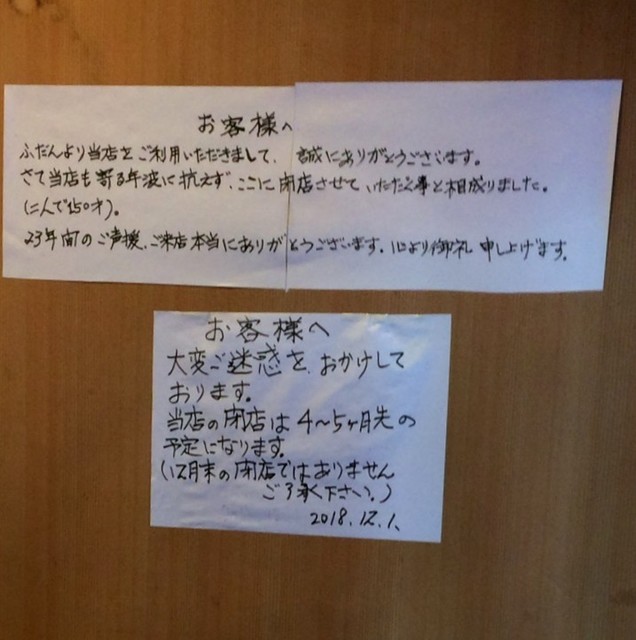 お客様へ
ふだんより当店をご利用いただきまして、誠にありがとうございます。
さて当店も寄る年波に抗えず、ここに閉店させていただく事と相成りました。
(二人で150才)。
23年間のご声援、ご来店本当にありがとうございます。心より御礼申し上げます。
お客様へ
大変ご迷惑を、おかけして
おります。
当店の閉店は4〜5ヶ月先の
予定になります。
(12月末の閉店ではありません
ご了承下さい。)
2018.12.1、